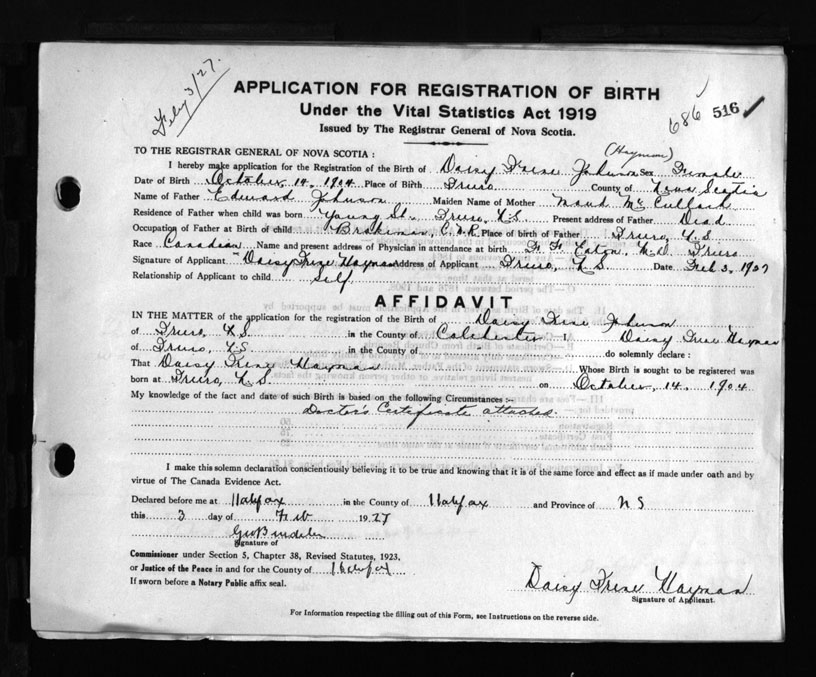 Feby 3/27.
APPLICATION FOR REGISTRATION OF BIRTH
Under the Vital Statistics Act 1919
686 516
Issued by The Registrar General of Nova Scotia.
(Hayman)
TO THE REGISTRAR GENERAL OF NOVA SCOTIA :
I hereby make application for the Registration of the Birth of Daisy Irene Johnson Sex Female
Date of Birth October 14, 1904 Place of Birth Truro County of Nova Scotia
Name of Father Edward Johnson Maiden Name of Mother Maud McCullock
Residence of Father when child was born Young St. Truro, N.S. Present address of Father Dead
Occupation of Father at Birth of child Brakeman, Place of Birth of Father Truro, N.S.
Race Canadian Name and present address of Physician in attendance at birth Eaton, M.D. Truro
Signature of Applicant "Daisy Irene Hayman Address of Applicant Truro, N.S. Date Feb 3, 1927
Relationship of Applicant to child Self
AFFIDAVIT
IN THE MATTER of the application for the registration of the Birth of Daisy Irene Johnson
of Truro, N.S. in the County of Colchester I Daisy Irene Hayman
of Truro, N.S. in the County of do solemnly declare :
That Daisy Irene Hayman Whose Birth is sought to be registered was
born at Truro, N.S. on October, 14, 1904
My knowledge of the fact and date of such Birth is based on the following Circumstances :-
Doctor's Certificate attached.
I make this solemn declaration conscientiously believing it to be true and knowing that it is of the same force and effect as if made under oath and by
virtue of The Canada Evidence Act.
Declared before me at Halifax in the County of Halifax and Province of N S
this 3 day of Feb 1927
Signature of
Commissioner under Section 5, Chapter 38, Revised Statutes, 1923,
or Justice of the Peace in and for the County of Halifax
If sworn before a Notary Public affix seal.
Daisy Irene Hayman
Signature of Applicant.
For Information respecting the filling out of this Form, see Instructions on the reverse side.